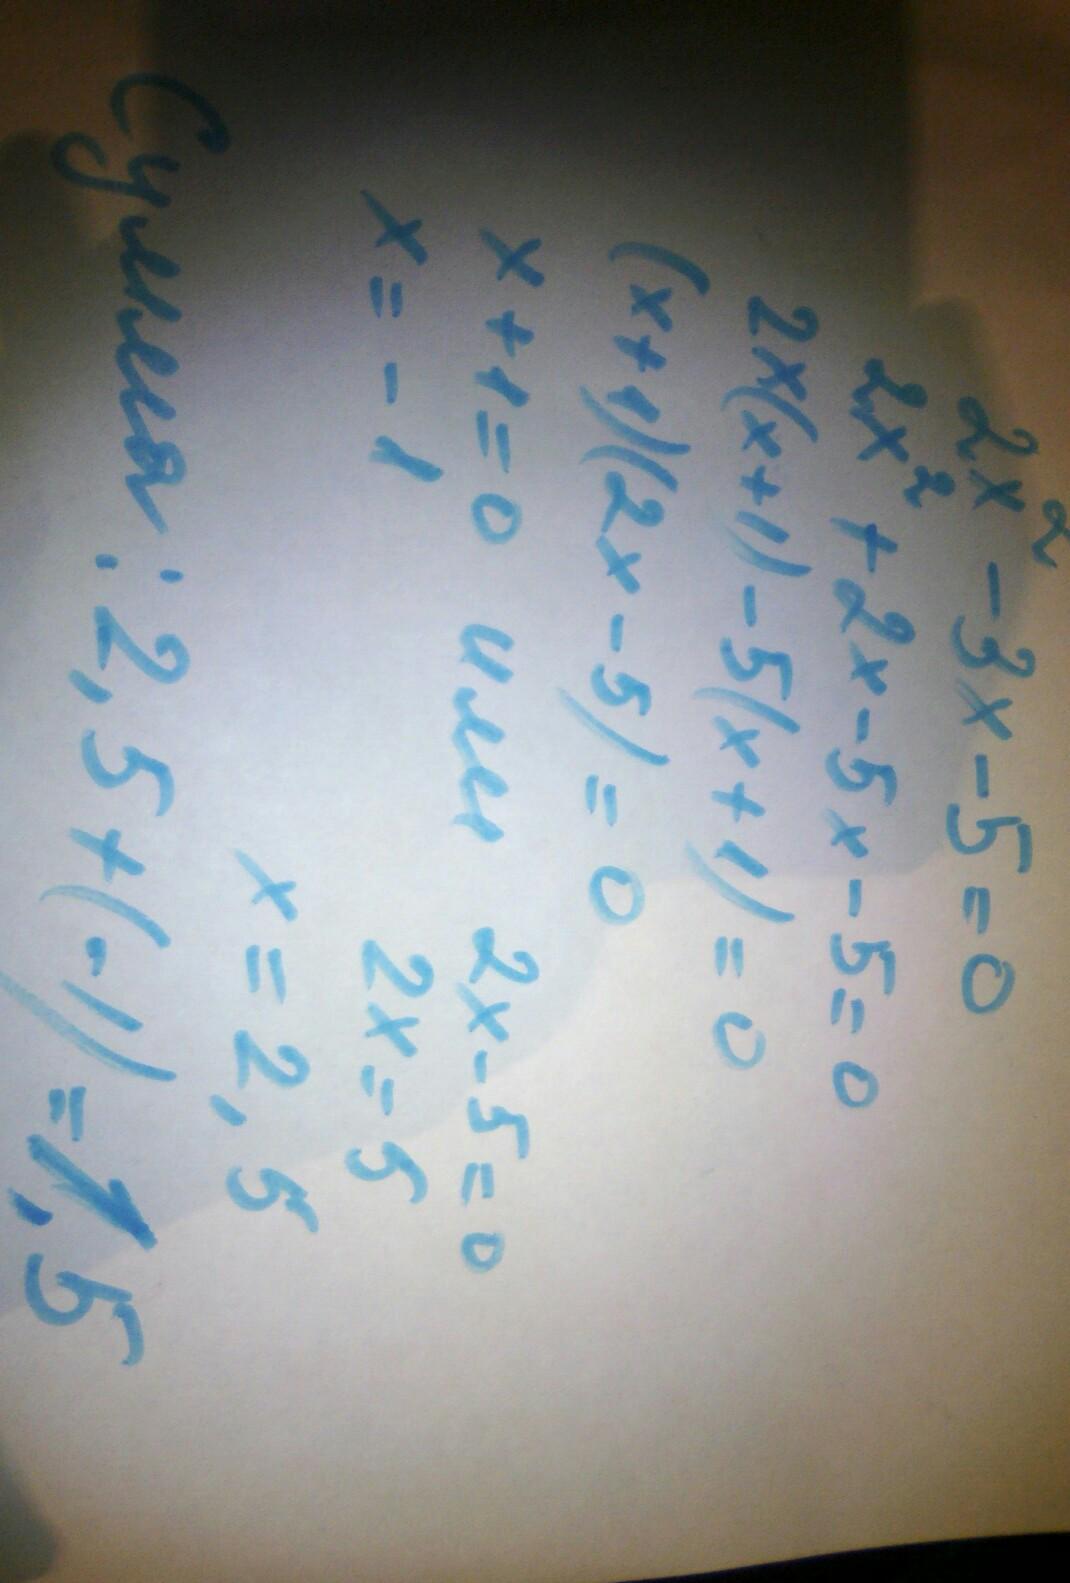 2x² - 3x - 5 = 0
2x² + 2x - 5x - 5 = 0
2x(x+1) - 5(x+1) = 0
(x+1)(2x-5) = 0
x+1=0 или 2x-5=0
x = -1 2x=5
x = 2,5
Сумма: 2,5+(-1) = 1,5